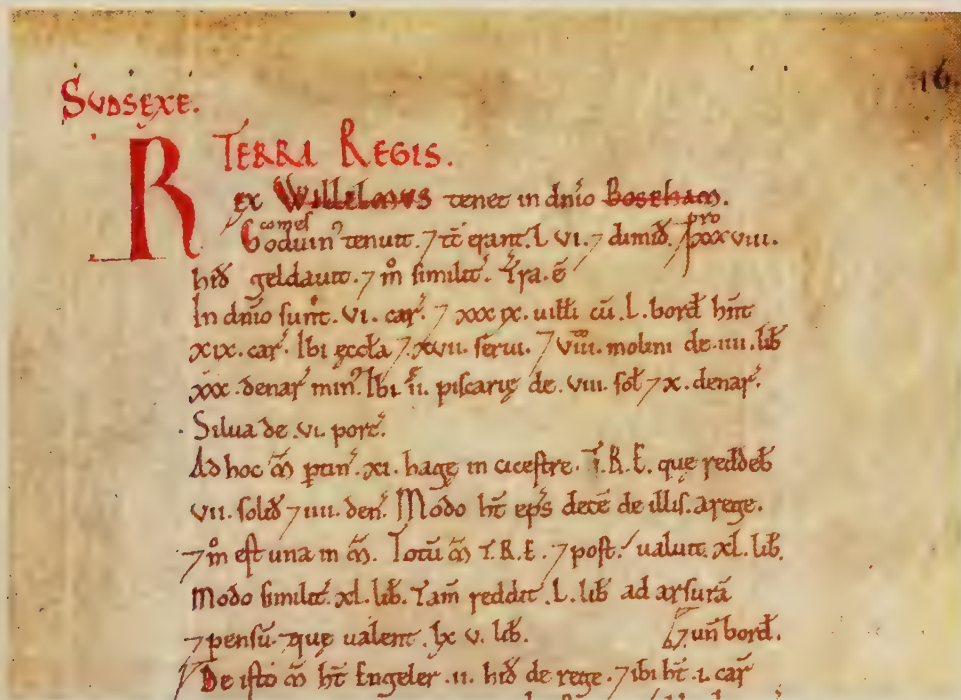 16.
SUDSEXE.
TERRA REGIS.
REX Willelmus tenet in dn̄io Boseham.
comes pro
Goduin' tenuit. ⁊ tc̄ erant. L VI. ⁊ dimid̄. xxx viii.
hid̄ geldauit. ⁊ m̊ similit'. T̄ra. ē
In dn̄io sunt. vi. car'. ⁊ xxx ix. uilłi cū. L. bord̄ hn̄t
xix. car'. Ibi ęccła ⁊ xvii. serui. ⁊ viii. molini de. iiii. lib̄
xxx. denar' min'. Ibi. ii. piscarię de. viii. sol̄ ⁊ x. denar'.
Silua de .vi. porc'.
Ad hoc m̄ ptin'. xi. hagę in cicestre. T.R.E. quę reddeb̄
vii. solid̄ ⁊ iiii. den'. Modo ht̄ ep̄s decē de illis. a rege.
⁊ m̊ est una in m̄. Totū m̄ T.R.E. ⁊ post. ualuit. xl. lib̄.
Modo similit'. xl. lib̄. Tam̄ reddit .L. lib̄ ad arsurā
⁊ pensū. que ualent. lx v. lib̄. ⁊ un̄ bord̄.
De isto m̄ ht̄ Engeler .ii. hid̄ de rege. ⁊ ibi ht̄ .i. car'